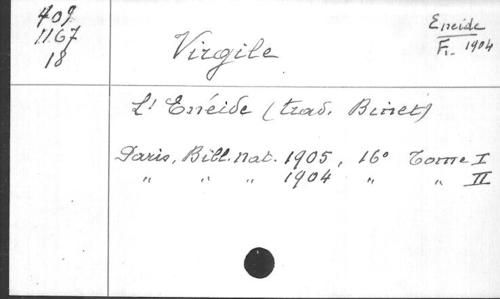 409
1167
18
Enéide
Fr. 1904
Virgile
L'Enéide (trad. Binet)
Paris, Bibl. nat. 1905, 16° Tome I
" " " 1904 " " II